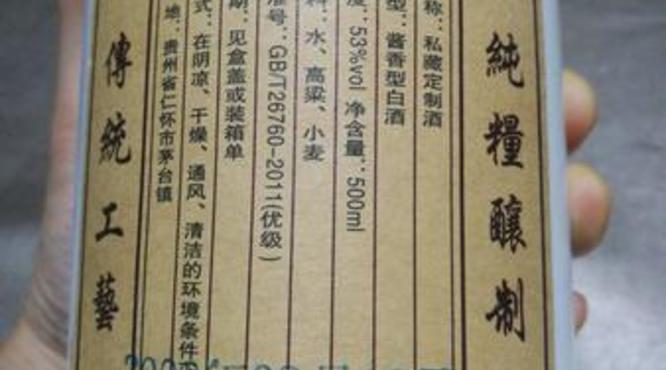 純糧釀制
称：私藏定制酒
型：酱香型白酒
度：53%vol 净含量：500ml
料：水、高粱、小麦
准号：GB/T26760-2011(优级)
期：见盒盖或装箱单
式：在阴凉、干燥、通风、清洁的环境条件
地：贵州省仁怀市茅台镇
傳統工藝